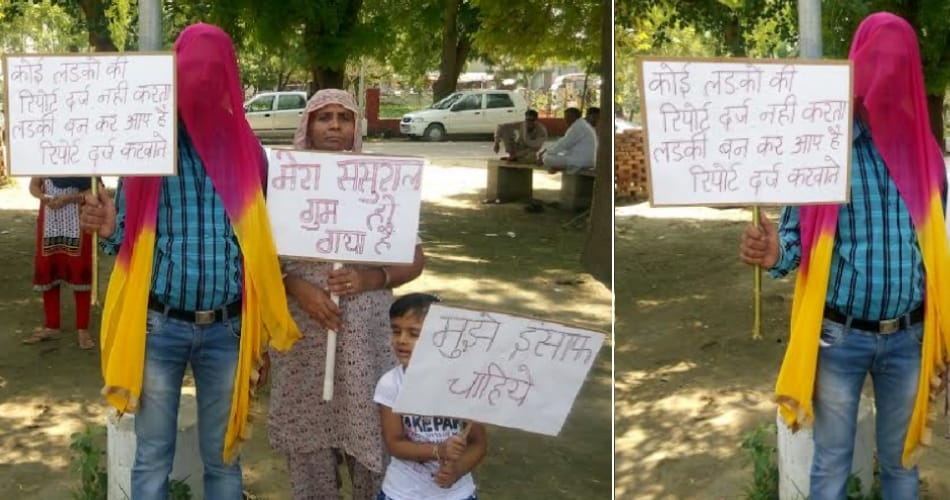 कोई लडको की
रिपोर्ट दर्ज नही करता
लडकी बन कर आए है
रिपोर्ट दर्ज करवाने
मेरा ससुराल
गुम हो
गया है
मुझे इसाफ
चाहिये
कोई लडको की
रिपोर्ट दर्ज नही करता
लडकी बन कर आए है
रिपोर्ट दर्ज करवाने